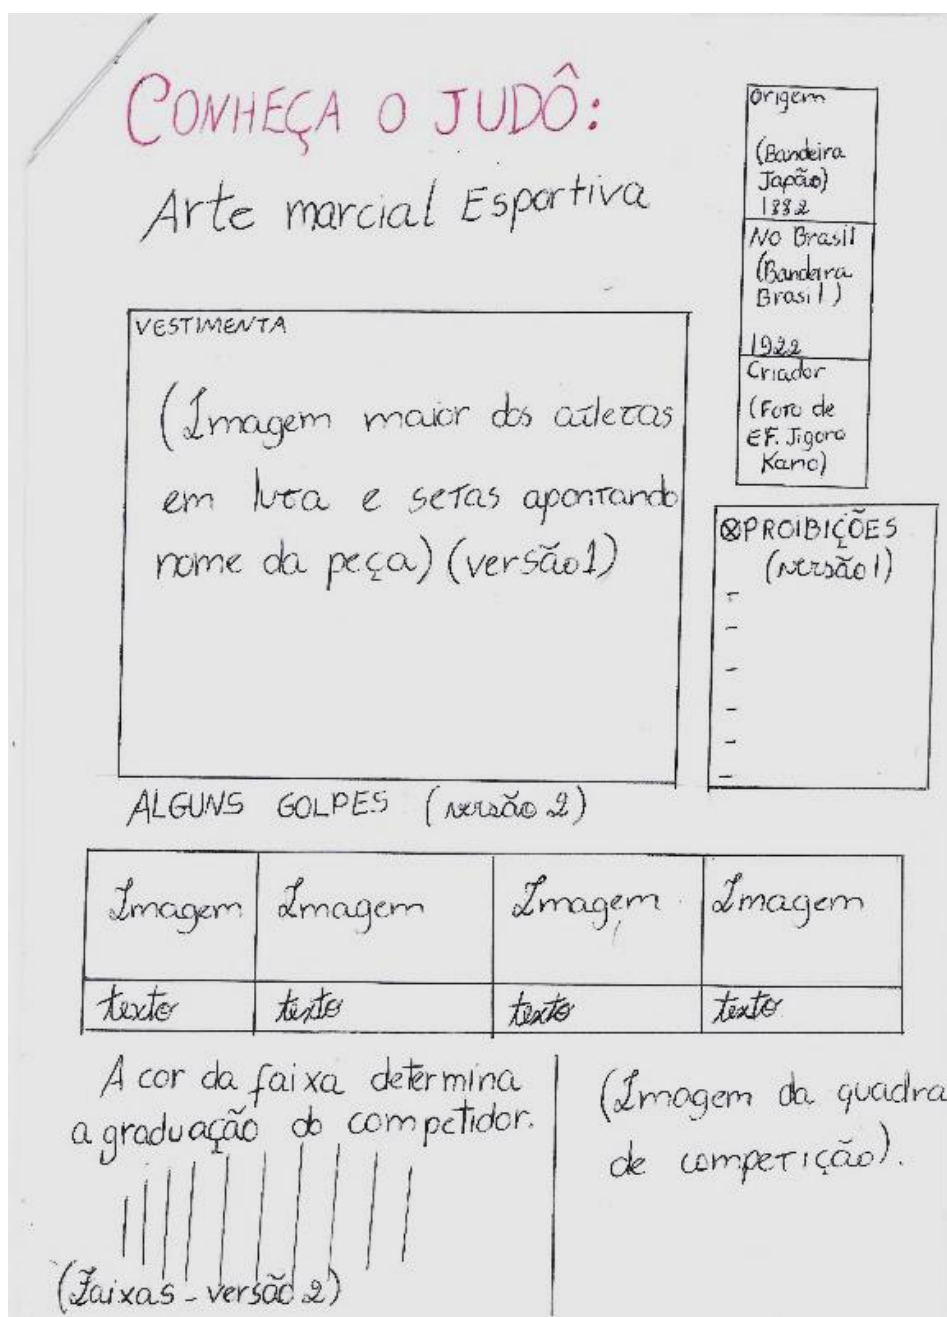 CONHEÇA O JUDÔ:
Arte marcial Esportiva
Origem
(Bandeira
Japão)
1882
No Brasil
(Bandeira
Brasil)
1922
Criador
(Foto de
EF. Jigoro
Kano)
VESTIMENTA
(Imagem maior dos atletas
em luta e setas apontando
nome da peça) (versão 1)
⊗PROIBIÇÕES
(versão 1)
-
-
-
-
-
-
ALGUNS GOLPES (versão 2)
Imagem Imagem Imagem Imagem
texto texto texto texto
A cor da faixa determina
a graduação do competidor.
(Faixas - versão 2)
(Imagem da quadra
de competição).